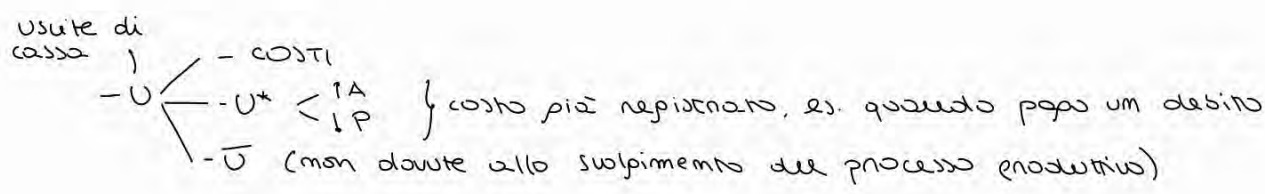 uscite di
cassa
- COSTI
- U
- U* < ↑A ↓P } costo già registrato, es. quando pago un debito
- U̅ (non dovute allo svolgimento del processo produttivo)